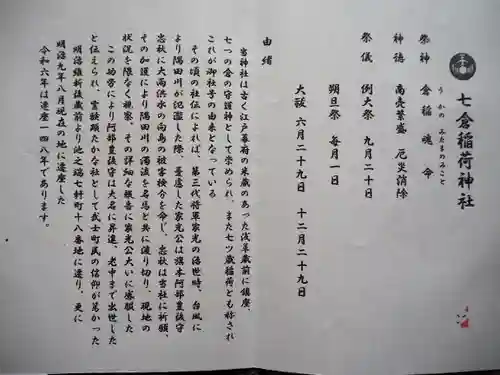 七倉稲荷神社
祭神　倉稲魂命
うかのみたまのみこと
神徳　商売繁盛　厄災消除
祭儀　例大祭　九月二十日
朔旦祭　毎月一日
大祓　六月二十九日　十二月二十九日
由緒
当神社は古く江戸幕府の米蔵のあった浅草蔵前に鎮座、
七つの倉の守護神として崇められ、また七ツ蔵稲荷とも称され
これが御社号の由来となっている
その頃の社伝によれば、第三代将軍家光の治世時、台風に
より隅田川が氾濫した際、憂慮した家光公は旗本阿部豊後守
忠秋に大雨洪水の向島の被害検分を命じ、忠秋は当社に祈願、
その加護により隅田川の濁流を名馬と共に渡り切り、現地の
状況を限なく視察、その詳細な報告に家光公大いに感服した
この功労により阿部豊後守は大名に昇進、老中まで出世した
と伝えられ、霊験顕たかな社として武士町民の信仰が篤かった
明治維新後蔵前より池之端七軒町十八番地に遷り、更に
明治九年八月現在の地に遷座した
令和六年は遷座一四八年であります。